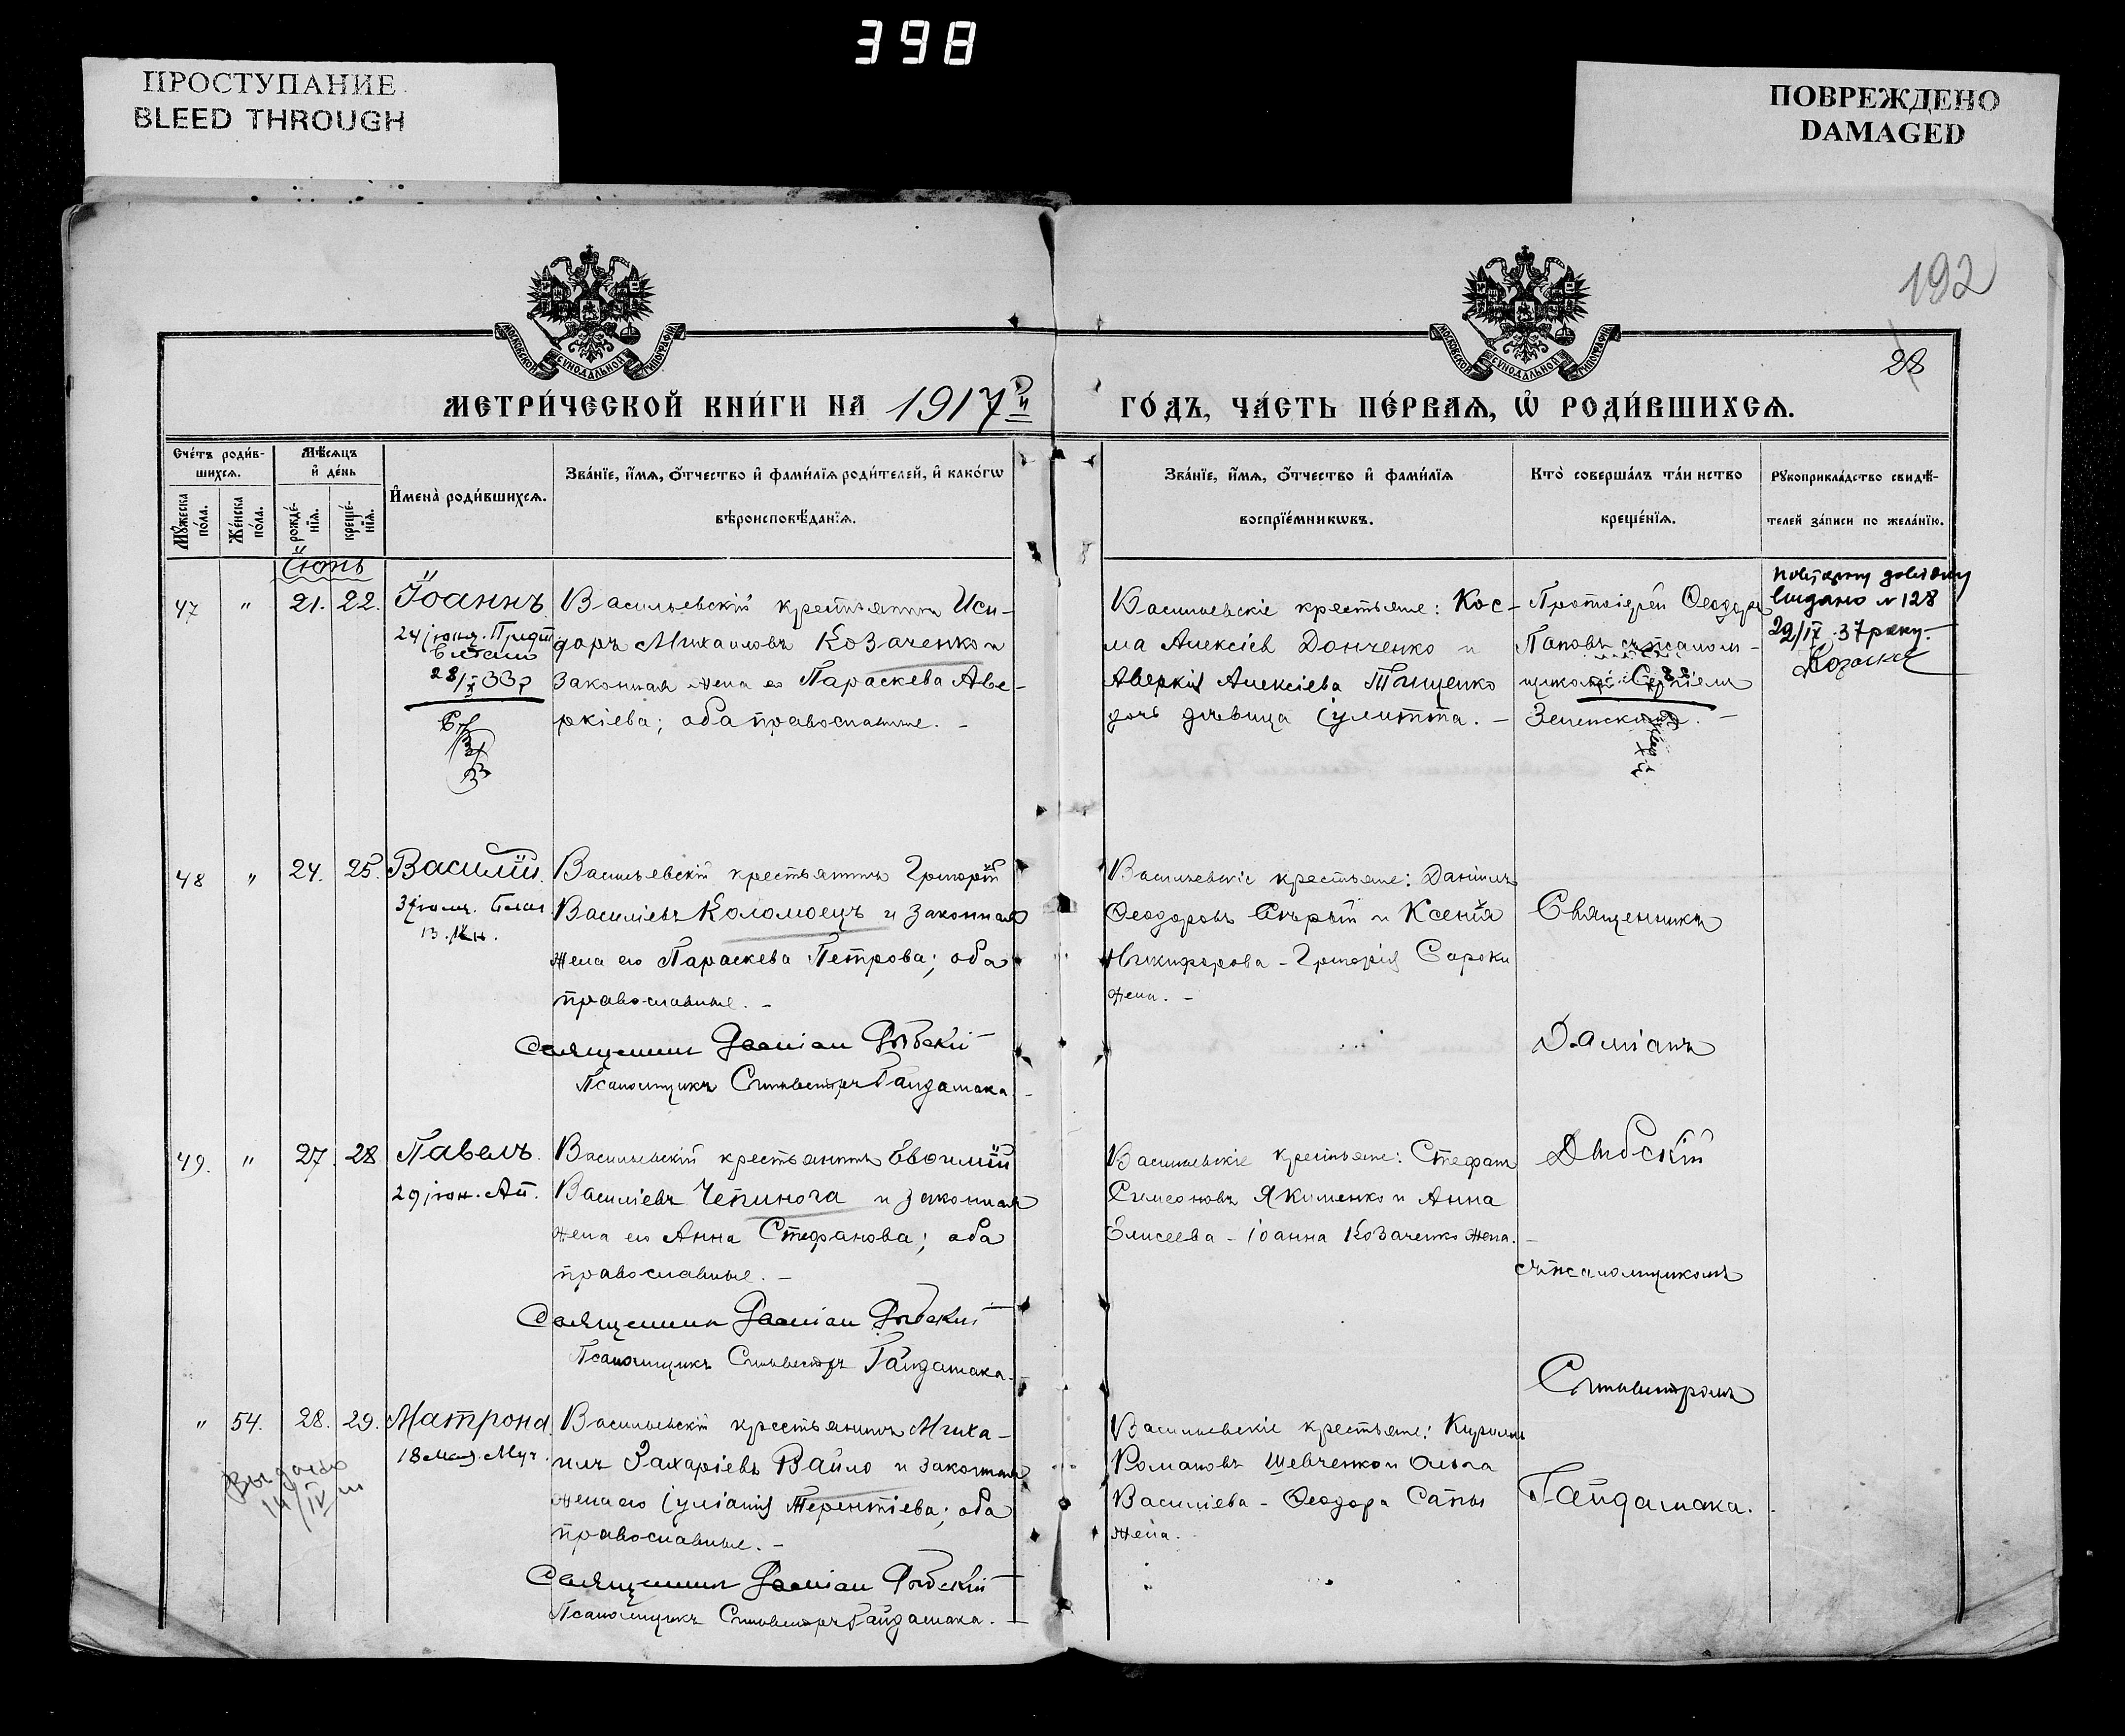 398
ПРОСТУПАНИЕ
BLEED THROUGH
ПОВРЕЖДЕНО
DAMAGED
192
28
МОСКОВСКОЙ СѴНОДАЛЬНОЙ ТИПОГРАФІИ
МОСКОВСКОЙ СѴНОДАЛЬНОЙ ТИПОГРАФІИ
МЕТРИ́ЧЕСКОЙ КНИ́ГИ НА 1917й
ГО́ДЪ, ЧА́СТЬ ПЕ́РВАѦ, Ѡ҆ РОДИ́ВШИХСѦ.
Сче́тъ роди́в-
шихсѧ.
Мꙋ́жеска по́ла.
Же́нска по́ла.
Мѣ́сѧцъ
и҆ де́нь
рожде́-
нїѧ.
креще́-
нїѧ.
И҆мена̀ роди́вшихсѧ.
Зва́нїе, и҆́мѧ, ѻ҆́тчество и҆ фами́лїѧ роди́телей, и҆ како́гѡ
вѣроисповѣ́данїѧ.
Зва́нїе, и҆́мѧ, ѻ҆́тчество и҆ фами́лїѧ
воспрїе́мникѡвъ.
Кто̀ соверша́лъ та́инство
креще́нїѧ.
Рꙋкоприкла́дство свидѣ́-
телей за́писи по жела́нїю.
Іюнь
47 " 21. 22. Іоаннъ
24 іюня.
28/X 33 р
Васильевскій крестьянинъ Иси-
доръ Михаиловъ Козаченко и
законная жена его Параскева Аве-
ркіева; оба православные. -
Васильевскіе крестьяне: Кос-
ма Алексіевъ Донченко и
Аверкія Алексіева Тищенко
дочь дѣвица Іулитта. -
Протоіерей Ѳеодоръ
Поповъ съ псалом-
щикомъ Сергіемъ
Зеленскимъ. -
видано № 128
29/IV 37 року.
48 " 24. 25. Василій.
13. Іюн.
Васильевскій крестьянинъ Григорій
Василіевъ Коломоецъ и законная
жена его Параскева Петрова; оба
православные. -
Священникъ Даміанъ Дыбскій
Псаломщикъ Сильвестръ Гайдамака.
Васильевскіе крестьяне: Даніилъ
Ѳеодоровъ Скрытій и Ксенія
Никифорова - Григорія Сароки
жена. -
Священникъ
Даміанъ
Дыбскій
съ псаломщикомъ
Сильвестромъ
Гайдамака.
49. " 27. 28 Павелъ.
29 іюн. Ап.
Васильевскій крестьянинъ Евѳимій
Василіевъ Чепинога и законная
жена его Анна Стефанова; оба
православные. -
Священникъ Даміанъ Дыбскій
Псаломщикъ Сильвестръ Гайдамака.
Васильевскіе крестьяне: Стефанъ
Симеоновъ Якименко и Анна
Елисеева - Іоанна Козаченко жена. -
" 54. 28. 29. Матрона.
18 мая. Муч.
Выдано
14/IV
Васильевскій крестьянинъ Миха-
илъ Захаріевъ Вайло и законная
жена его Іуліанія Терентіева; оба
православные. -
Священникъ Даміанъ Дыбскій
Псаломщикъ Сильвестръ Гайдамака.
Васильевскіе крестьяне: Кириллъ
Романовъ Шевченко и Ольга
Василіева - Ѳеодора Сапы
жена.